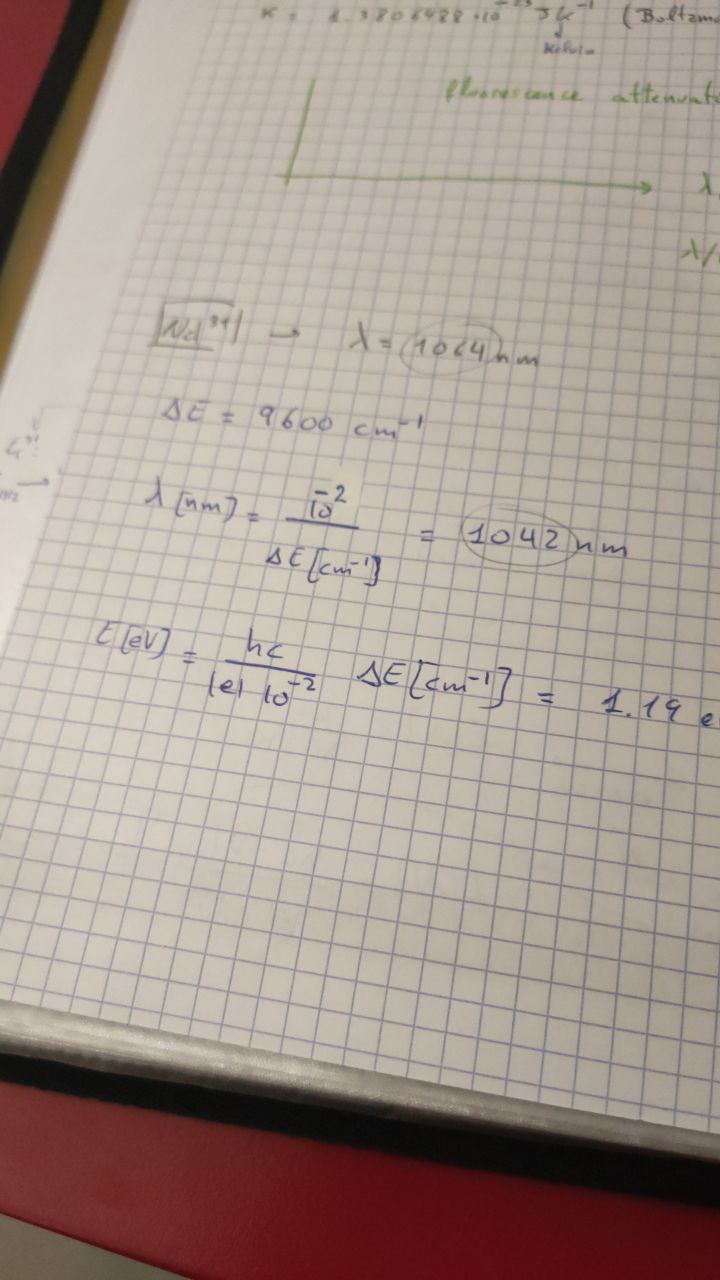 K = 1.3806488 · 10⁻²³ J K⁻¹ (Boltzma
Kelvin
fluorescence attenuati
λ
λ/
Nd³⁺ → λ = 1064 nm
ΔE = 9600 cm⁻¹
λ [nm] = 10⁻² / ΔE [cm⁻¹] = 1042 nm
E [eV] = hc / |e| 10⁻² ΔE [cm⁻¹] = 1.19 e